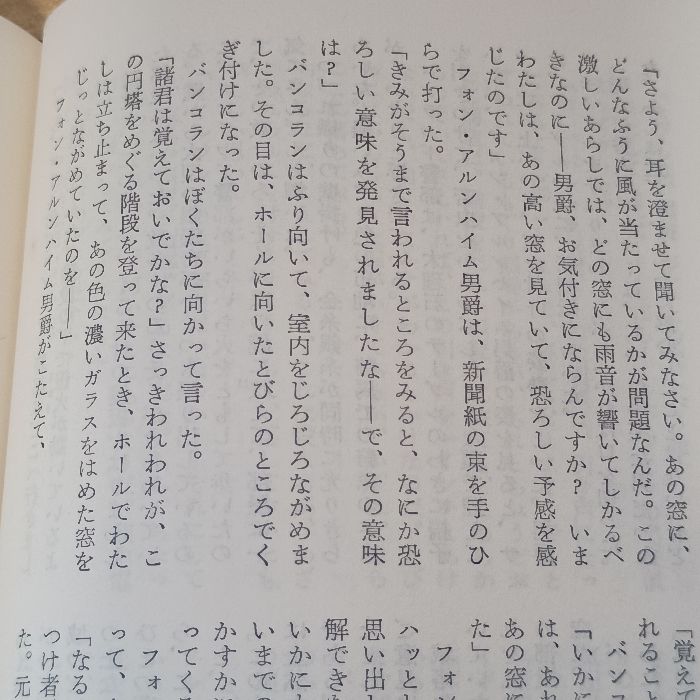 「さよう、耳を澄ませて聞いてみなさい。あの窓に、
どんなふうに風が当たっているかが問題なんだ。この
激しいあらしでは、どの窓にも雨音が響いてしかるべ
きなのに――男爵、お気付きにならんですか？　いま
わたしは、あの高い窓を見ていて、恐ろしい予感を感
じたのです」
フォン・アルンハイム男爵は、新聞紙の束を手のひ
らで打った。
「きみがそうまで言われるところをみると、なにか恐
ろしい意味を発見されましたな――で、その意味
は？」
バンコランはふり向いて、室内をじろじろながめま
した。その目は、ホールに向いたとびらのところでく
ぎ付けになった。
バンコランはぼくたちに向かって言った。
「諸君は覚えておいでかな？」さっきわれわれが、こ
の円塔をめぐる階段を登って来たとき、ホールでわた
しは立ち止まって、あの色の濃いガラスをはめた窓を
じっとながめていたのを――」
フォン・アルンハイム男爵がこたえて、
「覚え
れるこ
バン
「いかに
は、あれ
あの窓に
た」
フォン
ハッと
思い出し
解でき
いかに
いまでの
かすかに
ってく
フォ
って、
「なる
つけ者
た。元